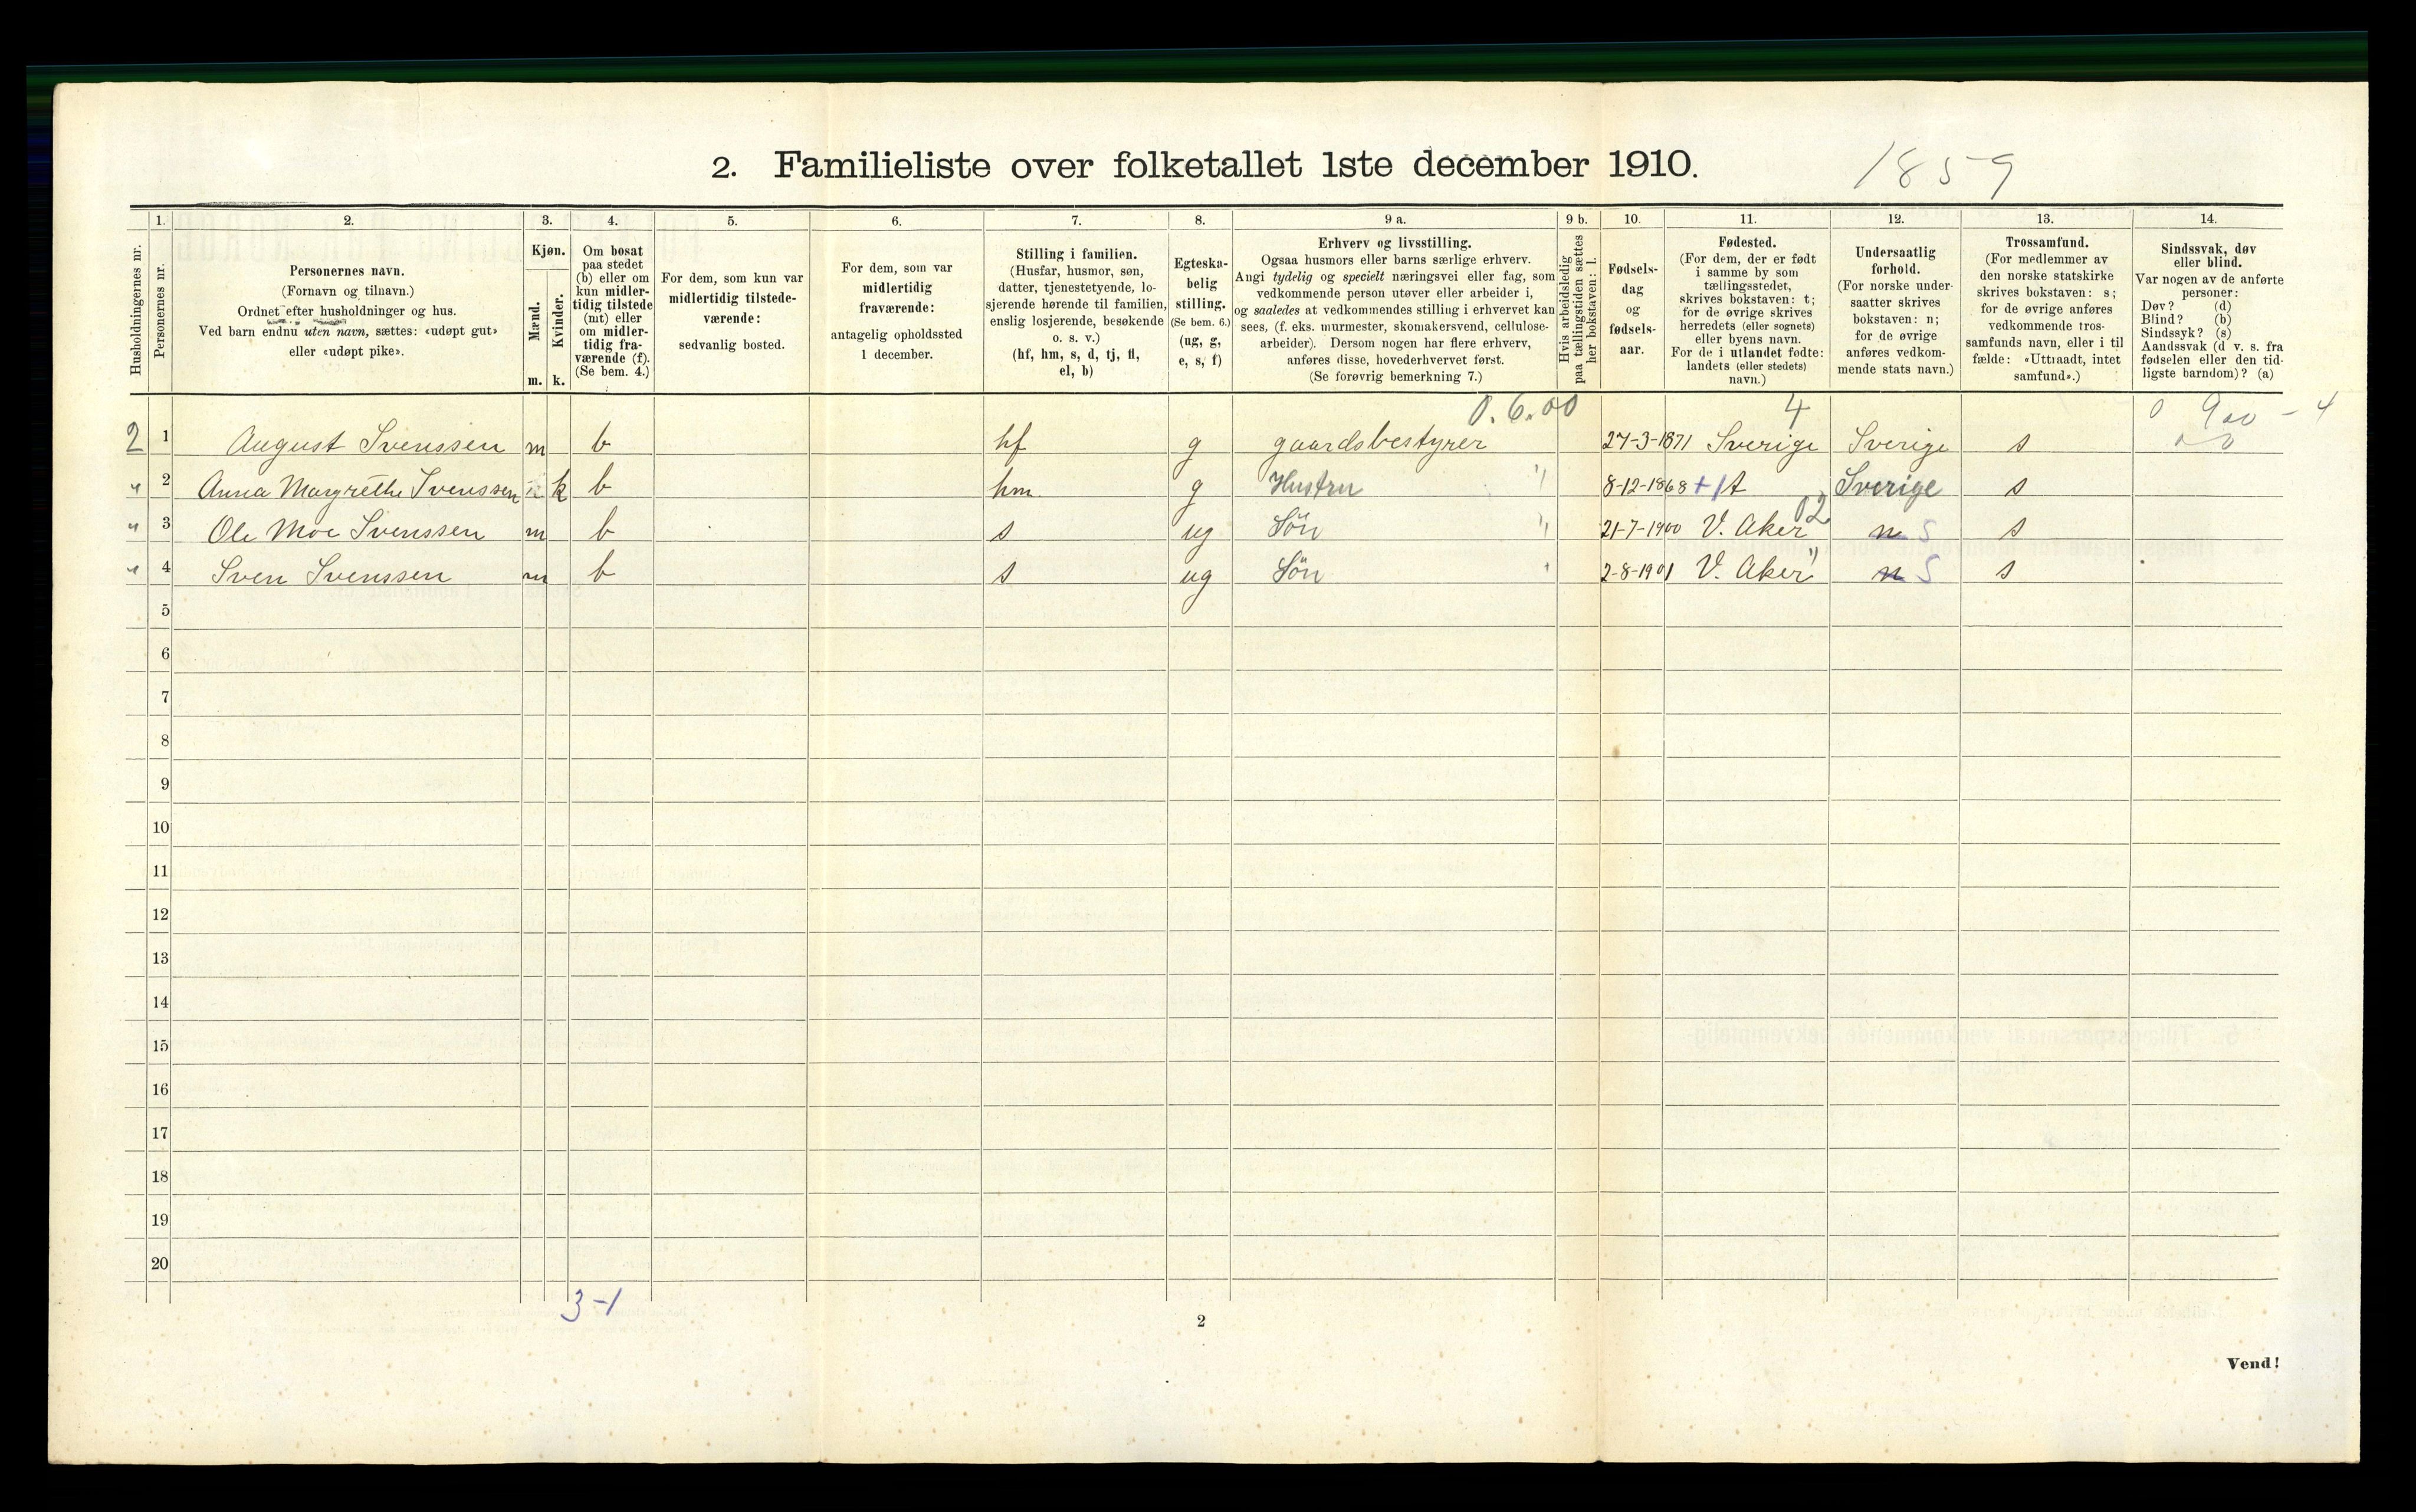 2. Familieliste over folketallet 1ste december 1910. 1859
1. 2. 3. 4. 5. 6. 7. 8. 9 a. 9 b. 10. 11. 12. 13. 14.
Husholdningernes nr.
Personernes nr.
Personernes navn.
(Fornavn og tilnavn.)
Ordnet efter husholdninger og hus.
Ved barn endnu uten navn, sættes: «udøpt gut»
eller «udøpt pike».
Kjøn.
Mænd.
m.
Kvinder.
k.
Om bosat
paa stedet
(b) eller om
kun midler-
tidig tilstede
(mt) eller
om midler-
tidig fra-
værende (f).
(Se bem. 4.)
For dem, som kun var
midlertidig tilstede-
værende:
sedvanlig bosted.
For dem, som var
midlertidig
fraværende:
antagelig opholdssted
1 december.
Stilling i familien.
(Husfar, husmor, søn,
datter, tjenestetyende, lo-
sjerende hørende til familien,
enslig losjerende, besøkende
o. s. v.)
(hf, hm, s, d, tj, fl,
el, b)
Egteska-
belig
stilling.
(Se bem. 6.)
(ug, g,
e, s, f)
Erhverv og livsstilling.
Ogsaa husmors eller barns særlige erhverv.
Angi tydelig og specielt næringsvei eller fag, som
vedkommende person utøver eller arbeider i,
og saaledes at vedkommendes stilling i erhvervet kan
sees, (f. eks. murmester, skomakersvend, cellulose-
arbeider). Dersom nogen har flere erhverv,
anføres disse, hovederhvervet først.
(Se forøvrig bemerkning 7.)
Hvis arbeidsledig
paa tællingstiden sættes
her bokstaven: l.
Fødsels-
dag
og
fødsels-
aar.
Fødested.
(For dem, der er født
i samme by som
tællingsstedet,
skrives bokstaven: t;
for de øvrige skrives
herredets (eller sognets)
eller byens navn.
For de i utlandet fødte:
landets (eller stedets)
navn.)
Undersaatlig
forhold.
(For norske under-
saatter skrives
bokstaven: n;
for de øvrige
anføres vedkom-
mende stats navn.)
Trossamfund.
(For medlemmer av
den norske statskirke
skrives bokstaven: s;
for de øvrige anføres
vedkommende tros-
samfunds navn, eller i til
fælde: «Uttraadt, intet
samfund».)
Sindssvak, døv
eller blind.
Var nogen av de anførte
personer:
Døv? (d)
Blind? (b)
Sindssyk? (s)
Aandssvak (d v. s. fra
fødselen eller den tid-
ligste barndom)? (a)
0.6.00 4
2 1 August Svenssen m b hf g gaardsbestyrer 27-3-1871 Sverige Sverige s
" 2 Anna Margrethe Svenssen k b hm g Hustru " 8-12-1868 t Sverige s
" 3 Ole Moe Svenssen m b s ug Søn " 21-7-1900 V. Aker 02 n S s
" 4 Sven Svenssen m b s ug Søn 2-8-1901 V. Aker " n S s
5
6
7
8
9
10
11
12
13
14
15
16
17
18
19
20
3-1
2
Vend!